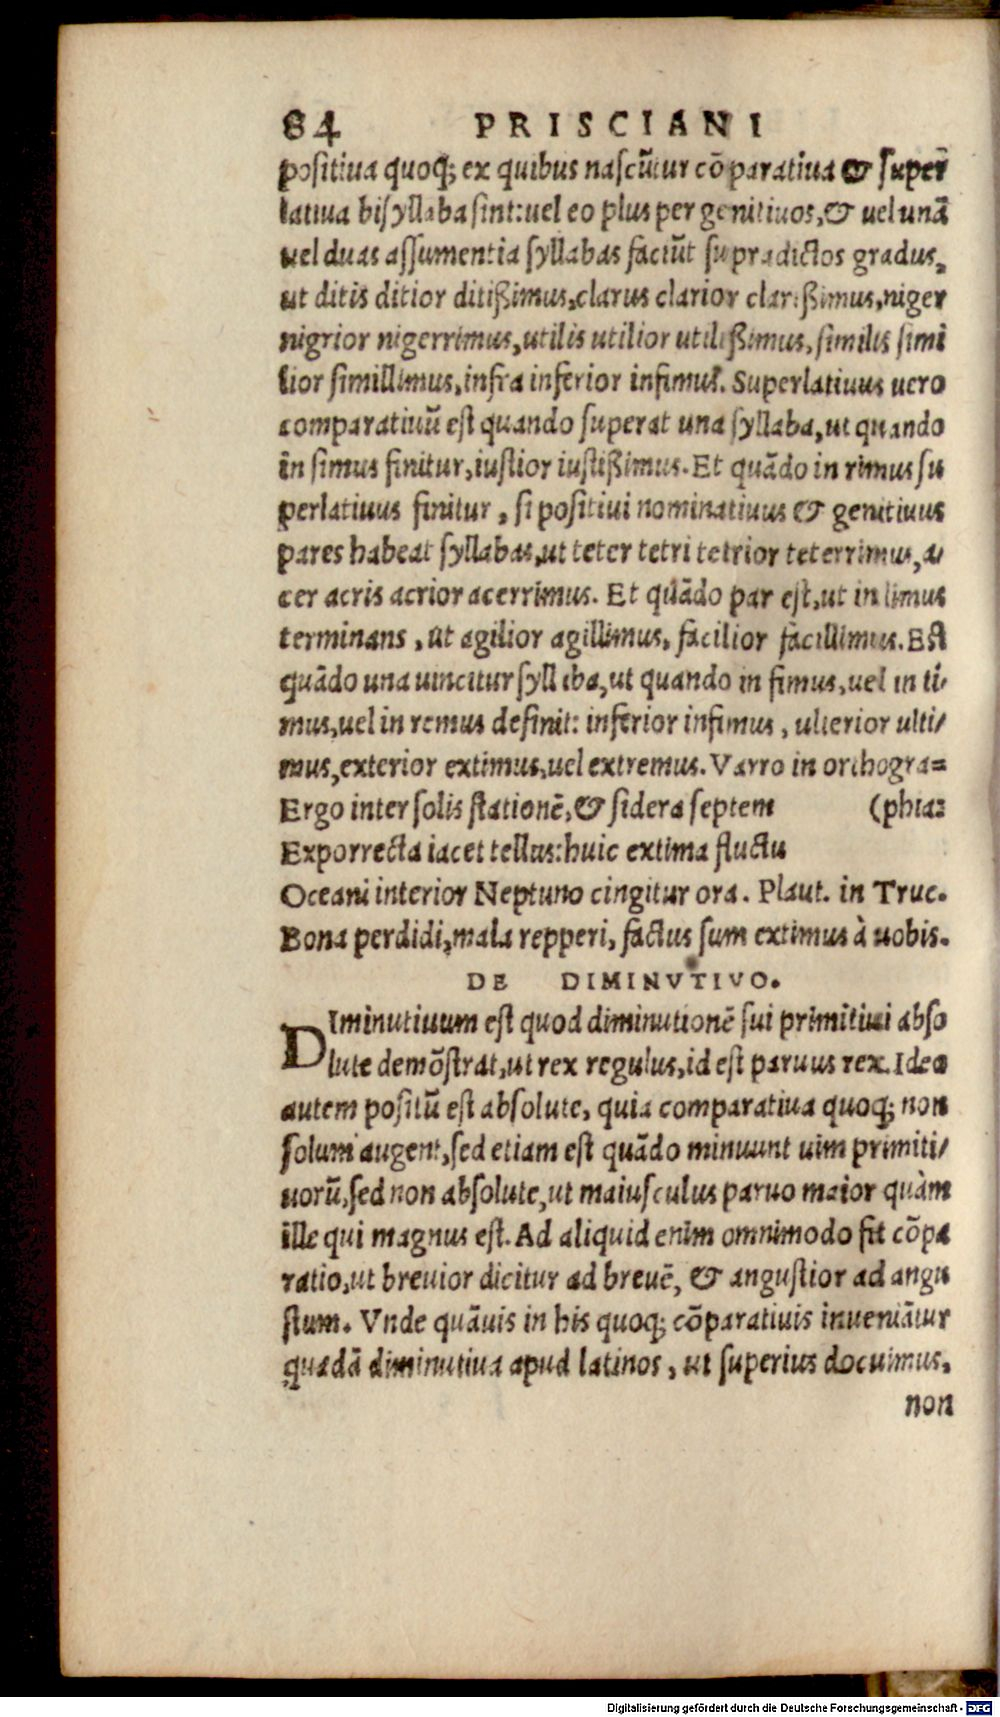 84 PRISCIANI
positiua quoq; ex quibus nascūtur cōparatiua & super
latiua bisyllaba sint: uel eo plus per genitiuos, & uel unā
uel duas assumentia syllabas faciūt supradictos gradus,
ut ditis ditior ditißimus, clarus clarior clarißimus, niger
nigrior nigerrimus, utilis utilior utilißimus, similis simi
lior simillimus, infra inferior infimus. Superlatiuus uero
comparatiuū est quando superat una syllaba, ut quando
in simus finitur, iustior iustißimus. Et quādo in rimus su
perlatiuus finitur, si positiui nominatiuus & genitiuus
pares habeat syllabas, ut teter tetri tetrior teterrimus, a/
cer acris acrior acerrimus. Et quādo par est, ut in limus
terminans, ut agilior agillimus, facilior facillimus. Est
quādo una uincitur syllaba, ut quando in fimus, uel in ti/
mus, uel in remus definit: inferior infimus, ulterior ulti/
mus, exterior extimus, uel extremus. Varro in orthogra=
Ergo inter solis stationē, & sidera septem (phia:
Exporrecta iacet tellus: huic extima fluctu
Oceani interior Neptuno cingitur ora. Plaut. in Truc.
Bona perdidi, mala repperi, factus sum extimus à uobis.
DE DIMINVTIVO.
DIminutiuum est quod diminutionē sui primitiui abso
lute demōstrat, ut rex regulus, id est paruus rex. Ideo
autem positū est absolute, quia comparatiua quoq; non
solum augent, sed etiam est quādo minuunt uim primiti/
uorū, sed non absolute, ut maiusculus paruo maior quàm
ille qui magnus est. Ad aliquid enim omnimodo fit cōpa
ratio, ut breuior dicitur ad breuē, & angustior ad angu
stum. Vnde quāuis in his quoq; cōparatiuis inueniātur
quædā diminutiua apud latinos, ut superius docuimus,
non
Digitalisierung gefördert durch die Deutsche Forschungsgemeinschaft - DFG